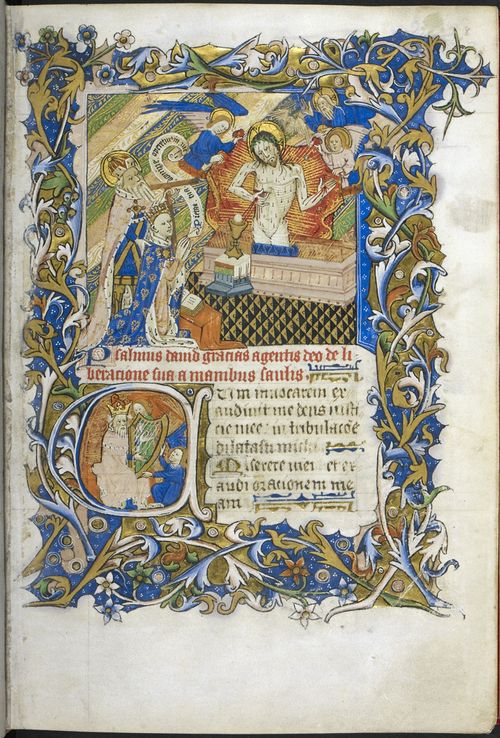 Psalmus david gracias agentis deo de li-
beracione sua a manibus saulis.
Cum inuocarem ex
audiuit me deus iusti
cie mee: in tribulacōe
dilatasti michi.
Miserere mei: et ex
audi orationem me
am